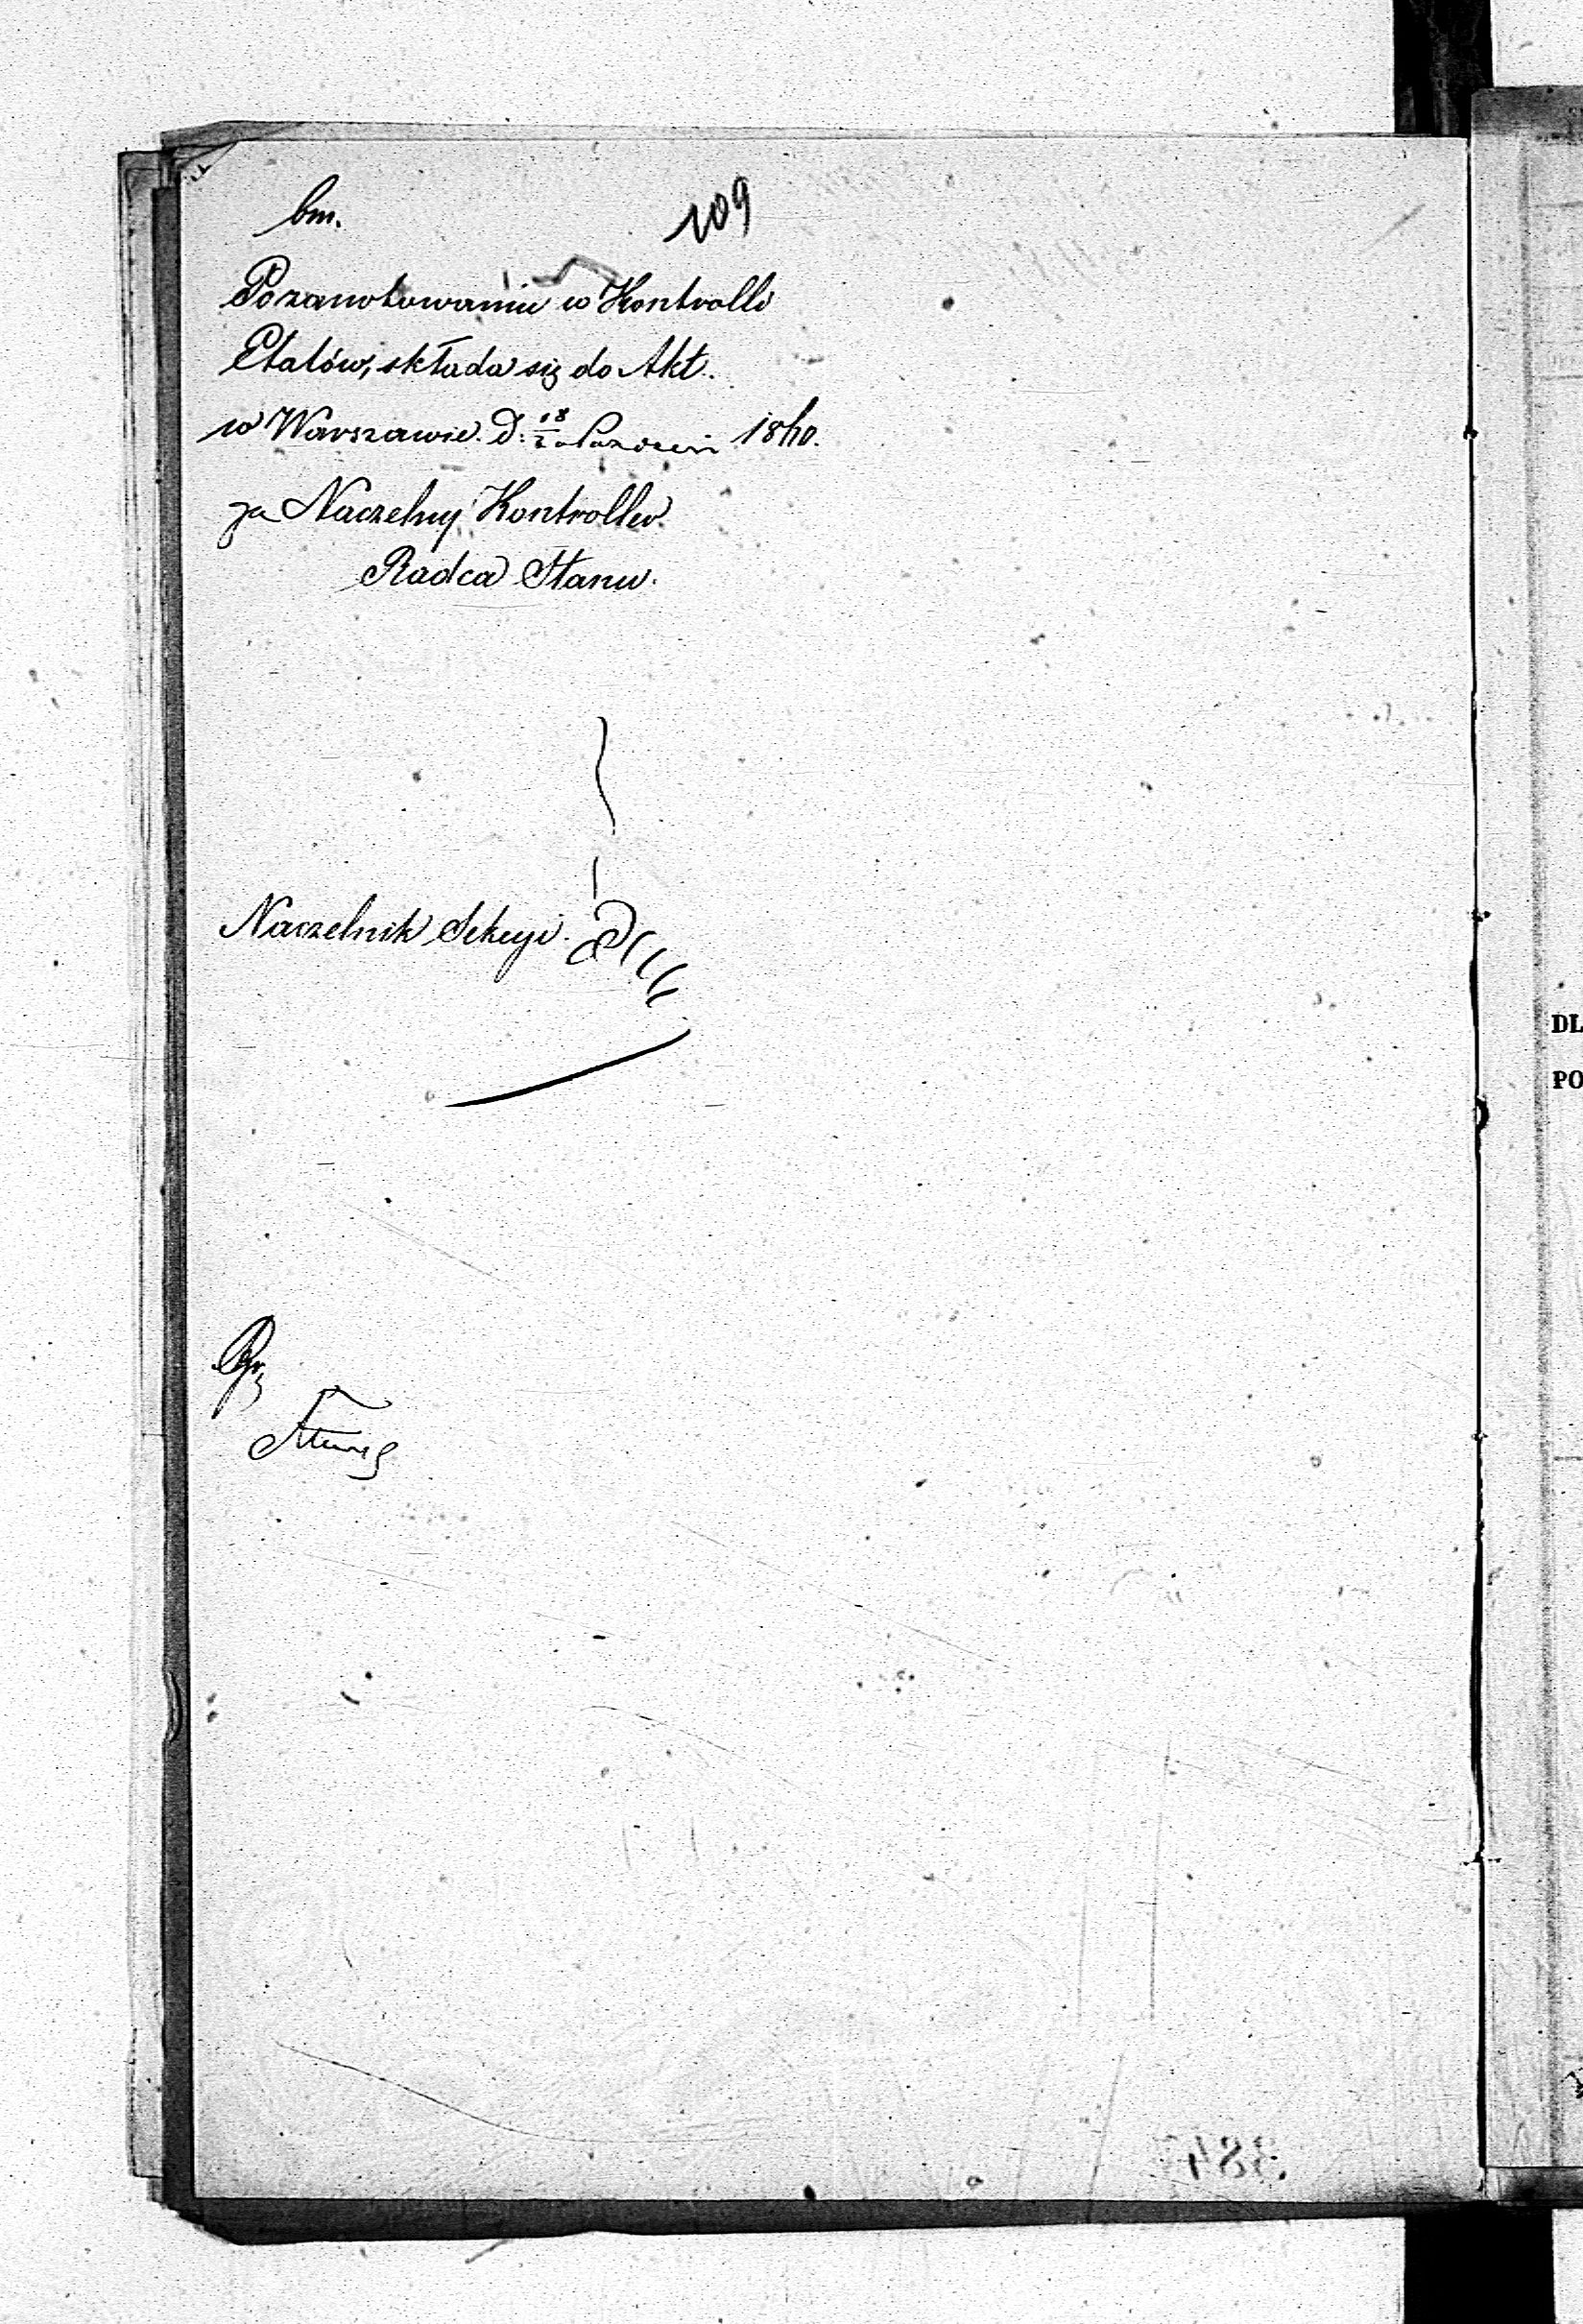 bm.
109
Po zanotowaniu w Kontrolli
Etatów, składa się do Akt.
w Warszawie. D. 18 Paździer 1860.
za Naczelny Kontroller
Radca Stanu.
Naczelnik Sekcyi.
384
DL
PO